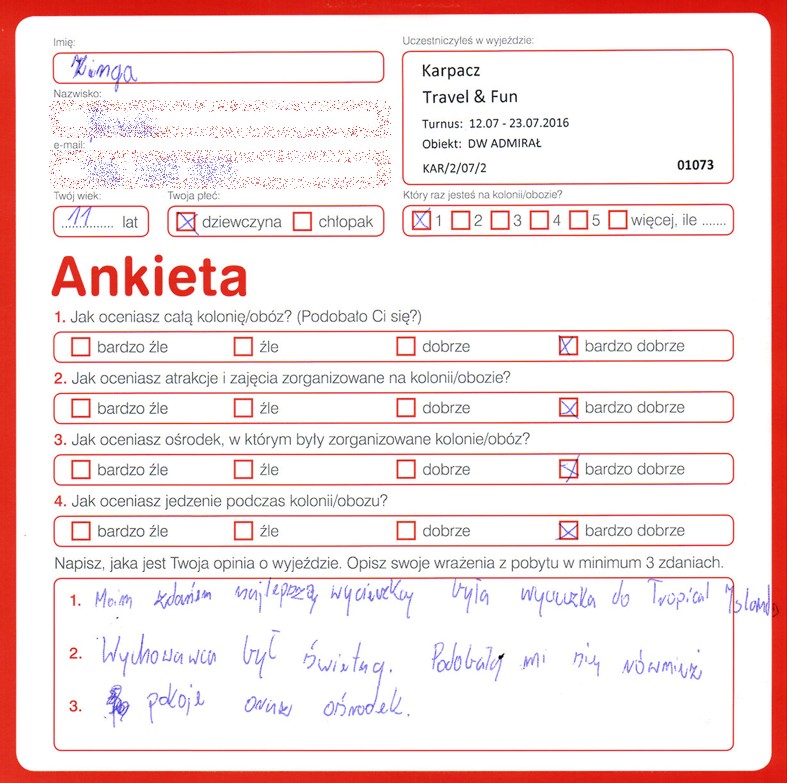 Imię:
Kinga
Uczestniczyłeś w wyjeździe:
Karpacz
Travel & Fun
Turnus: 12.07 - 23.07.2016
Obiekt: DW ADMIRAŁ
KAR/2/07/2 01073
Nazwisko:
e-mail:
Twój wiek:
11 lat
Twoja płeć:
dziewczyna chłopak
Który raz jesteś na kolonii/obozie?
1 2 3 4 5 więcej, ile .......
Ankieta
1. Jak oceniasz całą kolonię/obóz? (Podobało Ci się?)
bardzo źle źle dobrze bardzo dobrze
2. Jak oceniasz atrakcje i zajęcia zorganizowane na kolonii/obozie?
bardzo źle źle dobrze bardzo dobrze
3. Jak oceniasz ośrodek, w którym były zorganizowane kolonie/obóz?
bardzo źle źle dobrze bardzo dobrze
4. Jak oceniasz jedzenie podczas kolonii/obozu?
bardzo źle źle dobrze bardzo dobrze
Napisz, jaka jest Twoja opinia o wyjeździe. Opisz swoje wrażenia z pobytu w minimum 3 zdaniach.
1. Moim zdaniem najlepszą wycieczką była wycieczka do Tropical Island.
2. Wychowawca był świetny. Podobały mi się również
3. pokoje oraz ośrodek.